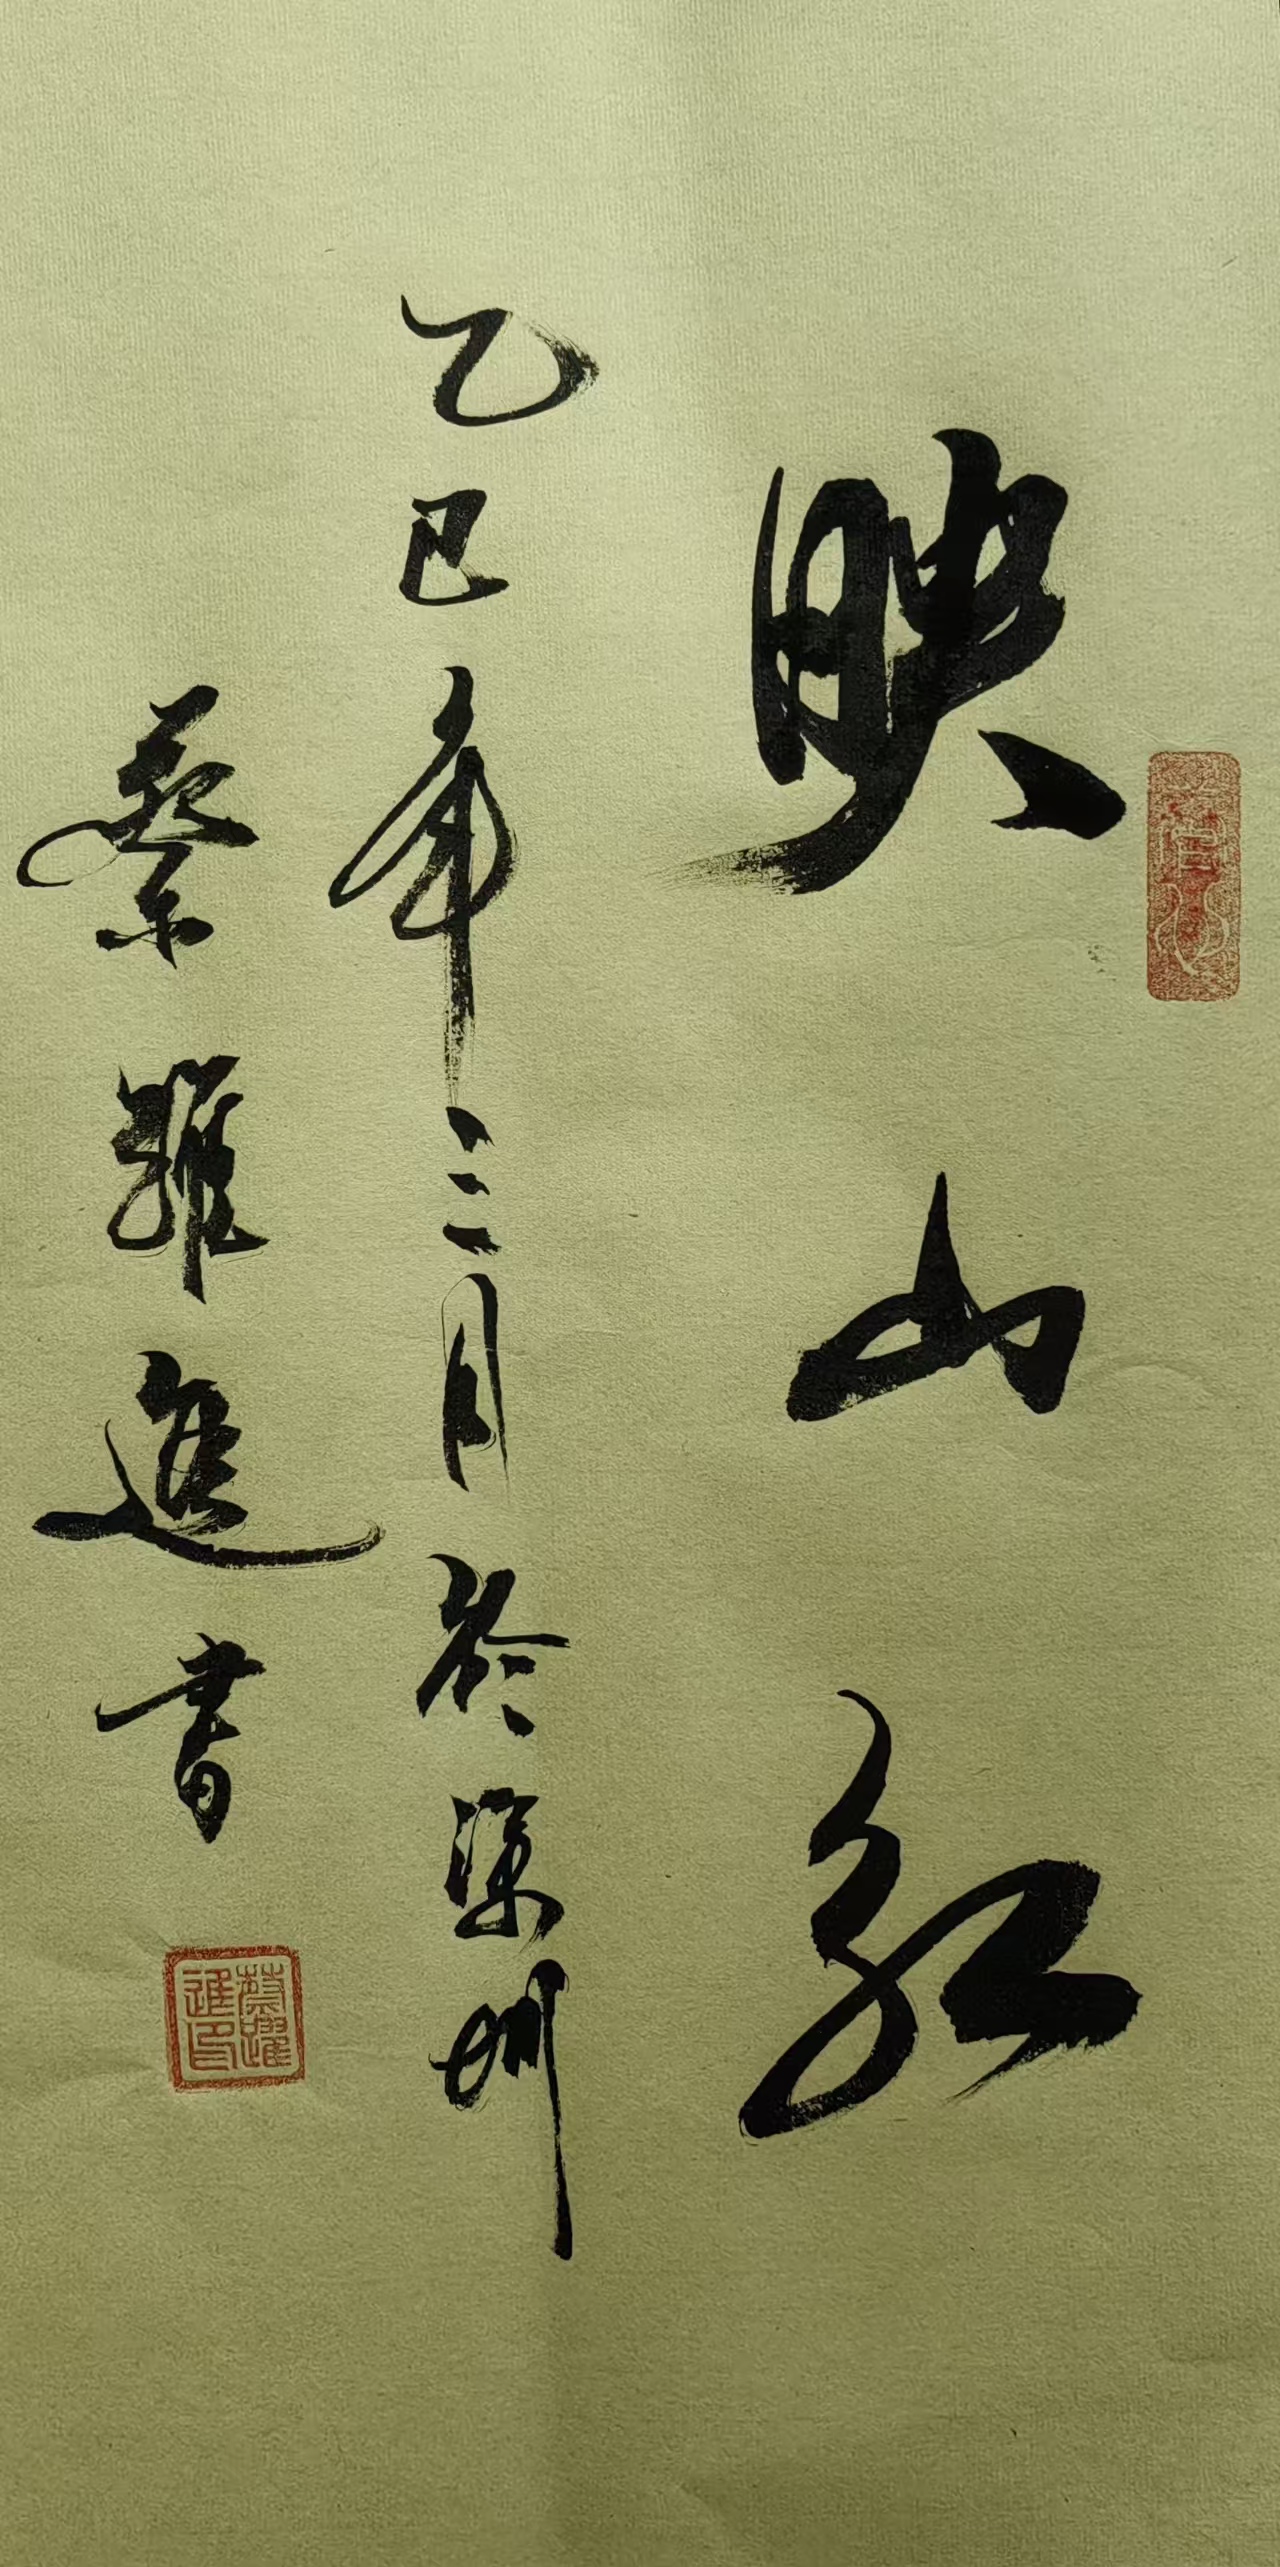 映山红
乙巳年三月於深圳
蔡躍進書
蔡躍
進印